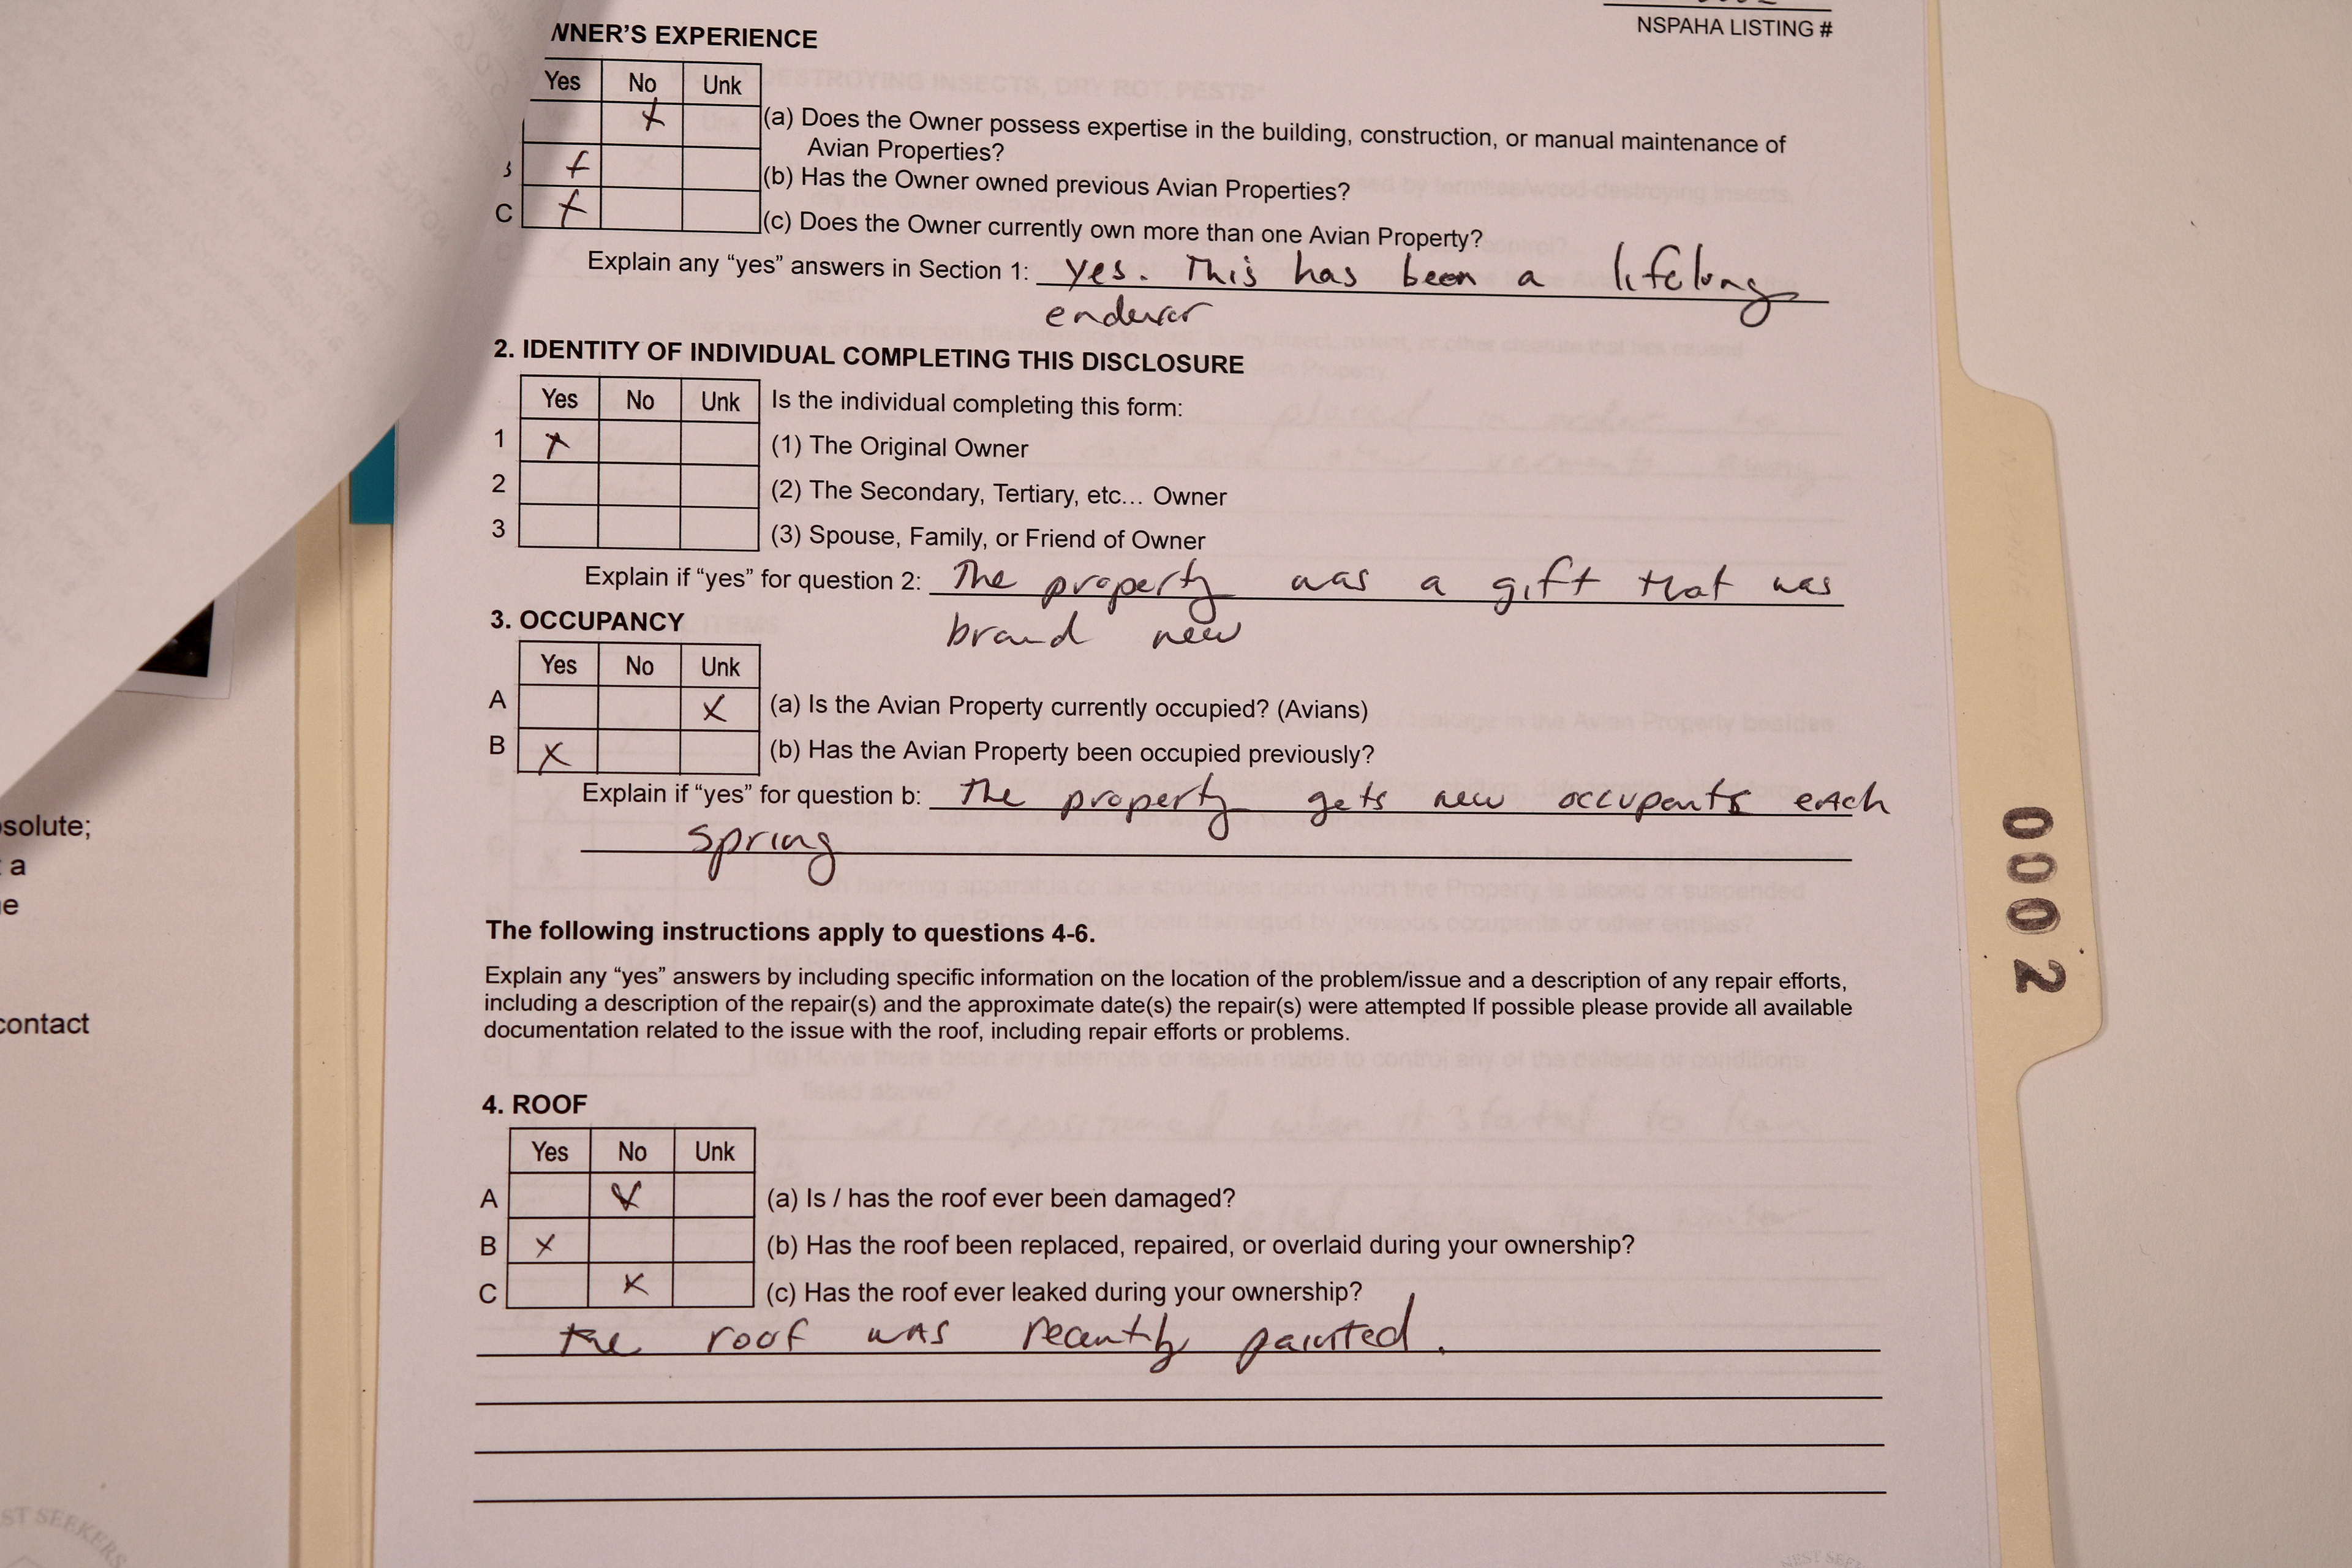 WNER'S EXPERIENCE
NSPAHA LISTING #
Yes No Unk
(a) Does the Owner possess expertise in the building, construction, or manual maintenance of
Avian Properties?
(b) Has the Owner owned previous Avian Properties?
C (c) Does the Owner currently own more than one Avian Property?
Explain any “yes” answers in Section 1: yes. This has been a lifelong
endevor
2. IDENTITY OF INDIVIDUAL COMPLETING THIS DISCLOSURE
Yes No Unk Is the individual completing this form:
1 (1) The Original Owner
2 (2) The Secondary, Tertiary, etc... Owner
3 (3) Spouse, Family, or Friend of Owner
Explain if “yes” for question 2: The property was a gift that was
brand new
3. OCCUPANCY
Yes No Unk
A X (a) Is the Avian Property currently occupied? (Avians)
B X (b) Has the Avian Property been occupied previously?
Explain if “yes” for question b: The property gets new occupants each
spring
The following instructions apply to questions 4-6.
Explain any “yes” answers by including specific information on the location of the problem/issue and a description of any repair efforts,
including a description of the repair(s) and the approximate date(s) the repair(s) were attempted If possible please provide all available
documentation related to the issue with the roof, including repair efforts or problems.
4. ROOF
Yes No Unk
A X (a) Is / has the roof ever been damaged?
B X (b) Has the roof been replaced, repaired, or overlaid during your ownership?
C X (c) Has the roof ever leaked during your ownership?
the roof was recently painted.
0002
solute;
a
e
contact
ST SEEKERS
NEST SEE